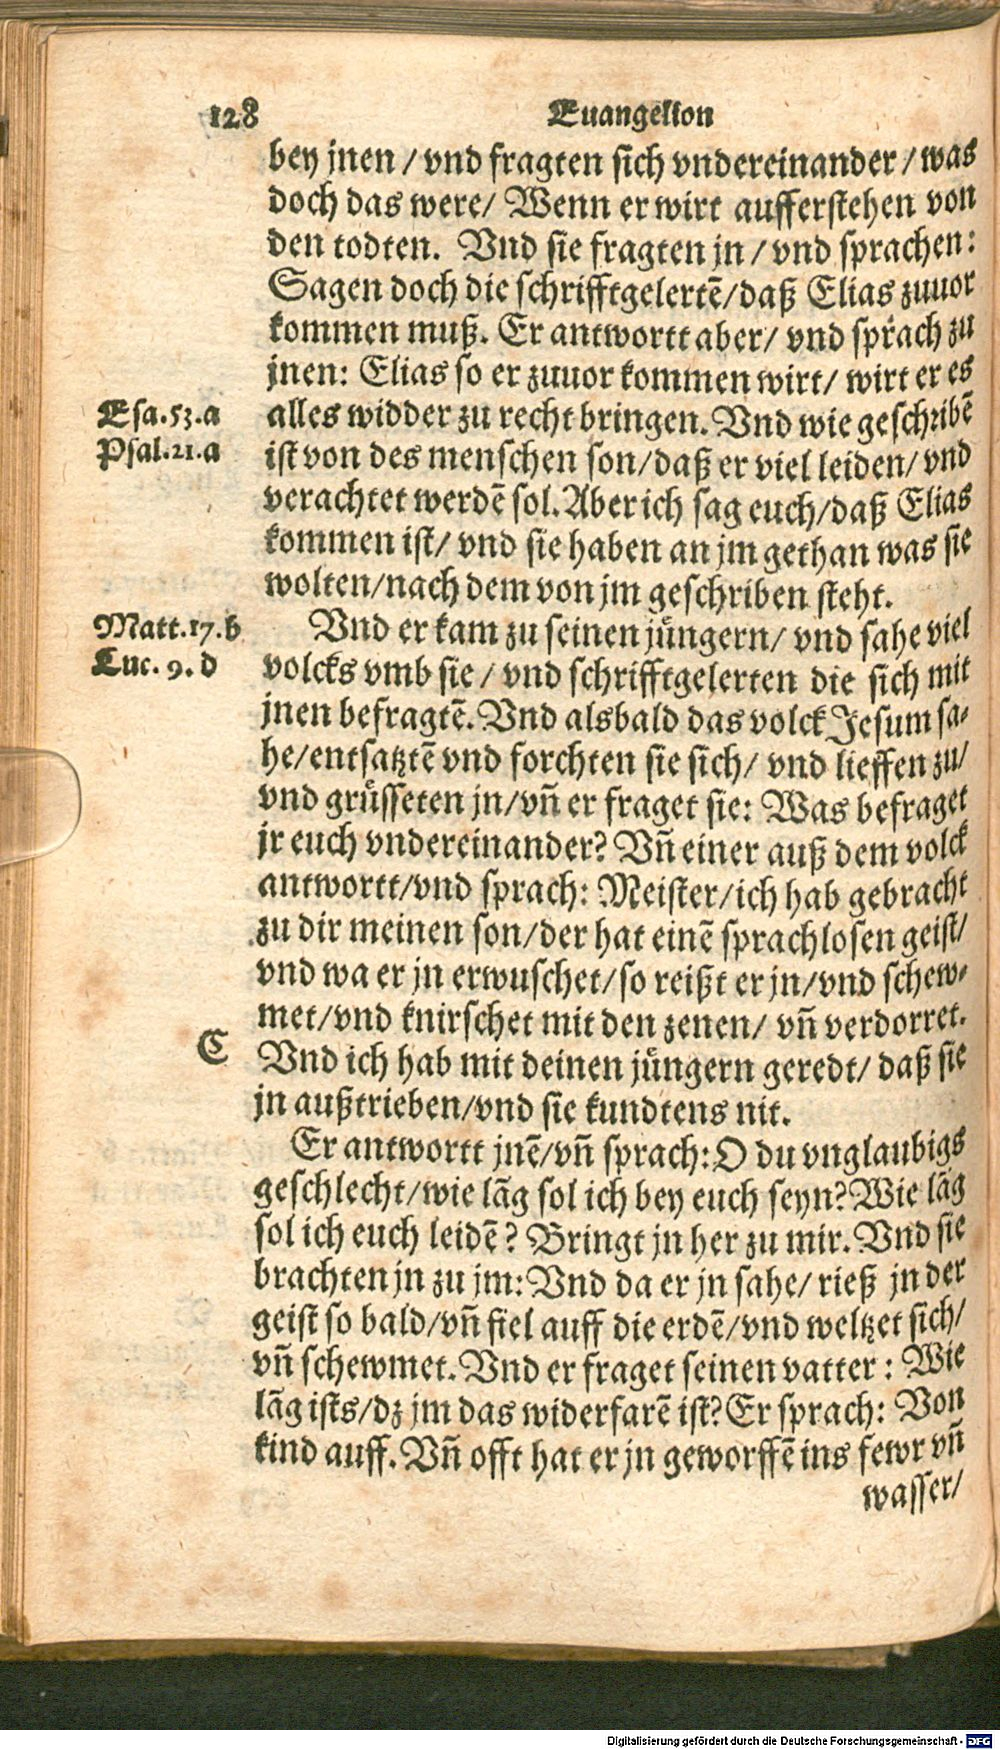 128 Euangelion
bey jnen / vnd fragten sich vndereinander / was
doch das were / Wenn er wirt aufferstehen von
den todten. Vnd sie fragten jn / vnd sprachen:
Sagen doch die schrifftgelertẽ/daß Elias zuuor
kommen muß. Er antwortt aber/ vnd sprach zu
jnen: Elias so er zuuor kommen wirt/ wirt er es
Esa.53.a
alles widder zu recht bringen. Vnd wie geschribẽ
Psal.21.a
ist von des menschen son/daß er viel leiden/ vnd
verachtet werdẽ sol. Aber ich sag euch/daß Elias
kommen ist/ vnd sie haben an jm gethan was sie
wolten/nach dem von jm geschriben steht.
Matt.17.b
Vnd er kam zu seinen jüngern/ vnd sahe viel
Luc. 9. d
volcks vmb sie / vnd schrifftgelerten die sich mit
jnen befragtẽ. Vnd alsbald das volck Jesum sa-
he/entsatztẽ vnd forchten sie sich/ vnd lieffen zu/
vnd grüsseten jn/vñ er fraget sie: Was befraget
jr euch vndereinander? Vñ einer auß dem volck
antwortt/vnd sprach: Meister/ich hab gebracht
zu dir meinen son/der hat einẽ sprachlosen geist/
vnd wa er jn erwuschet/so reißt er jn/vnd schew-
met/vnd knirschet mit den zenen/ vñ verdorret.
C
Vnd ich hab mit deinen jüngern geredt/ daß sie
jn außtrieben/vnd sie kundtens nit.
Er antwortt jnẽ/vñ sprach: O du vnglaubigs
geschlecht/wie lãg sol ich bey euch seyn? Wie lãg
sol ich euch leidẽ? Bringt jn her zu mir. Vnd sie
brachten jn zu jm: Vnd da er jn sahe/ rieß jn der
geist so bald/vñ fiel auff die erdẽ/vnd weltzet sich/
vñ schewmet. Vnd er fraget seinen vatter: Wie
lãg ists/dz jm das widerfarẽ ist? Er sprach: Von
kind auff. Vñ offt hat er jn geworffẽ ins fewr vñ
wasser/
Digitalisierung gefördert durch die Deutsche Forschungsgemeinschaft - DFG